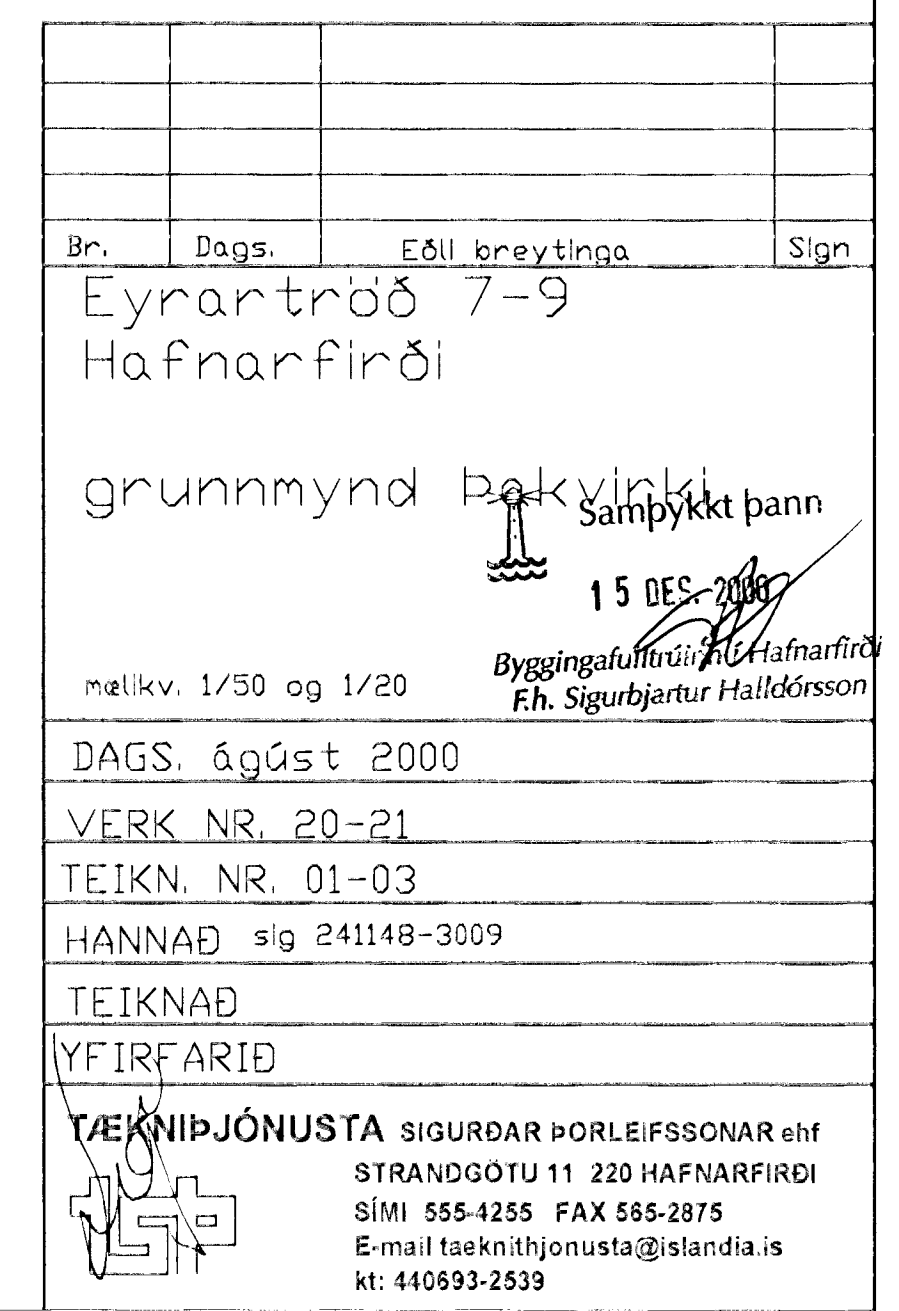 Br. Dags. Eðli breytinga Sign
Eyrartröð 7-9
Hafnarfirði
grunnmynd Þakvirki
Samþykkt þann
15 DES. 2000
Byggingafulltrúinn í Hafnarfirði
F.h. Sigurbjartur Halldórsson
mælikv. 1/50 og 1/20
DAGS. ágúst 2000
VERK NR. 20-21
TEIKN. NR. 01-03
HANNAÐ sig 241148-3009
TEIKNAÐ
YFIRFARIÐ
TÆKNIÞJÓNUSTA SIGURÐAR ÞORLEIFSSONAR ehf
STRANDGÖTU 11 220 HAFNARFIRÐI
SÍMI 555-4255 FAX 565-2875
E-mail taeknithjonusta@islandia.is
kt: 440693-2539